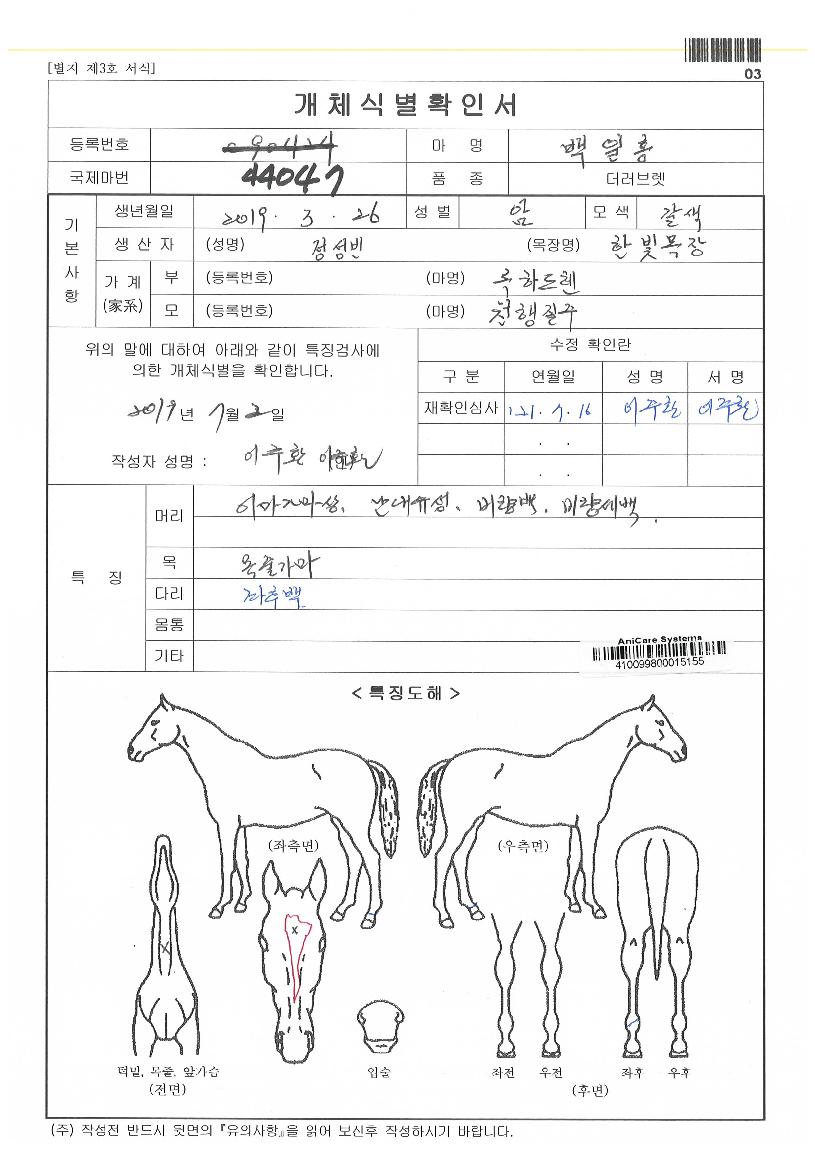 [별지 제3호 서식]
03
개체식별확인서
등록번호 마 명 백일홍
국제마번 44047 품 종 더러브렛
기본사항
생년월일 2019. 3. 26 성별 암 모색 갈색
생산자 (성명) 정성빈 (목장명) 한빛목장
가계(家系) 부 (등록번호) (마명) 록하드텐
모 (등록번호) (마명) 천행질주
위의 말에 대하여 아래와 같이 특징검사에
의한 개체식별을 확인합니다.
2019년 7월 2일
작성자 성명 : 이주환 이주환
수정 확인란
구 분 연월일 성 명 서 명
재확인심사 '21. 7. 16 이주환 이주환
. .
. .
특 징
머리 이마가마상, 난대유성, 비량백, 비량세백.
목 목줄가마
다리 좌후백
몸통
기타
AniCare Systems
410099800015155
< 특징도해 >
(좌측면) (우측면)
턱밑, 목줄, 앞가슴 입술 좌전 우전 좌후 우후
(전면) (후면)
(주) 작성전 반드시 뒷면의 『유의사항』을 읽어 보신후 작성하시기 바랍니다.